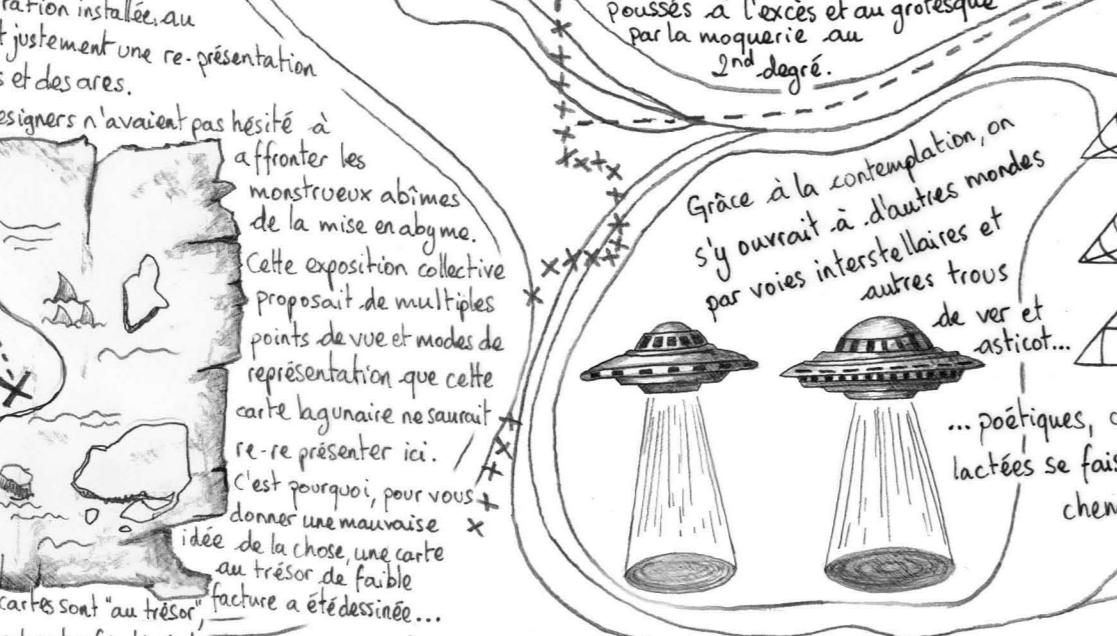 ration installée, au
justement une re-présentation
et des ares.
esigners n'avaient pas hésité à
affronter les
monstrueux abîmes
de la mise en abyme.
Cette exposition collective
proposait de multiples
points de vue et modes de
représentation que cette
carte lagunaire ne saurait
re-re présenter ici.
C'est pourquoi, pour vous
donner une mauvaise
idée de la chose, une carte
au trésor de faible
facture a été dessinée...
cartes sont "au trésor",
poussés à l'excès et au grotesque
par la moquerie au
2nd degré.
Grâce à la contemplation, on
s'y ouvrait à d'autres mondes
par voies interstellaires et
autres trous
de ver et
asticot...
... poétiques,
lactées se fais
chem